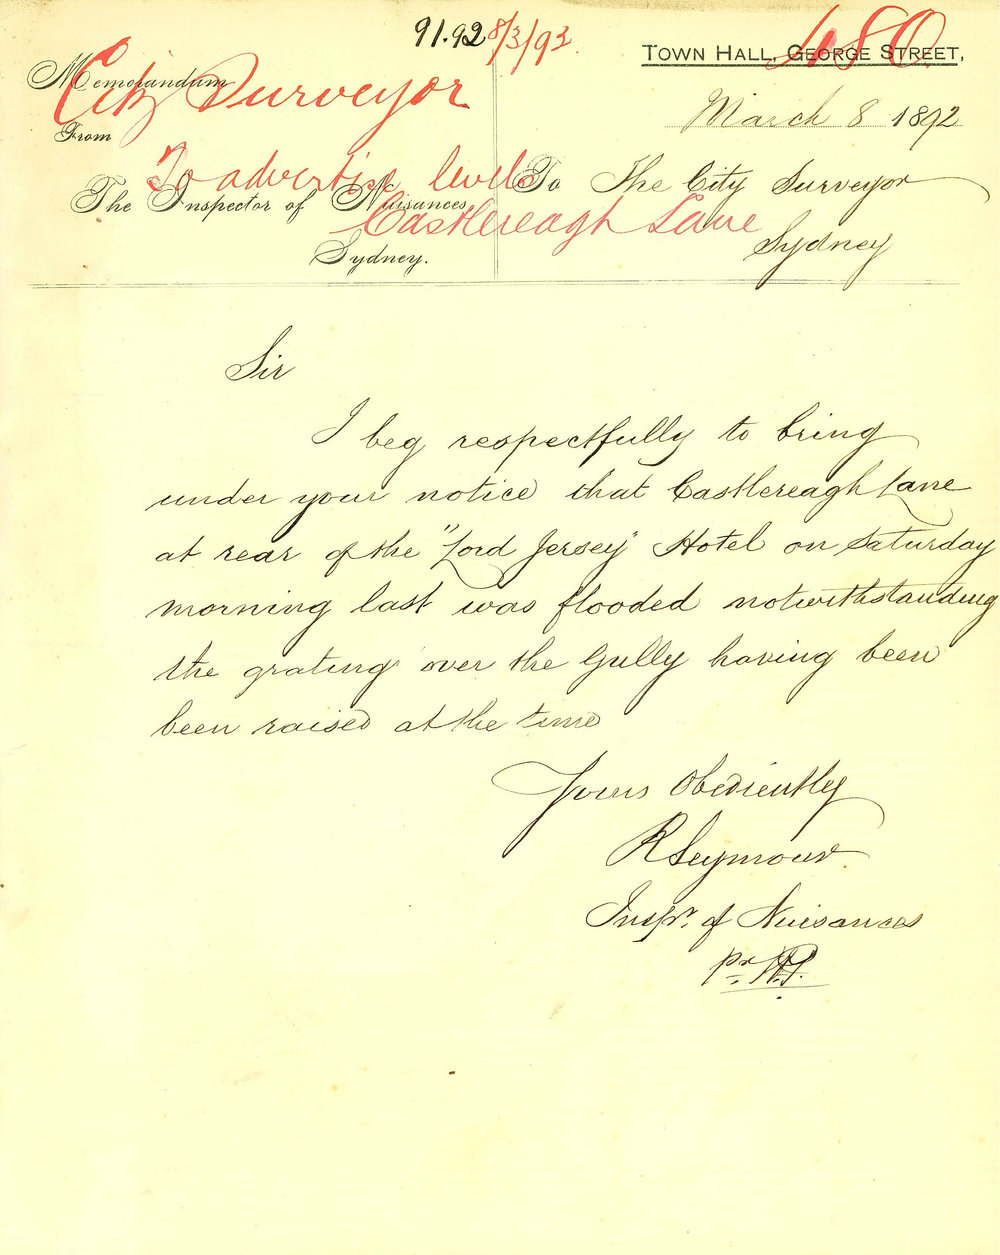 91.92 8/3/92
480
Town Hall, George Street,
Memorandum
City Surveyor
From
March 8 1892
To advertise levels
The Inspector of Nuisances
Sydney.
To The City Surveyor
Castlereagh Lane
Sydney
Sir
I beg respectfully to bring
under your notice that Castlereagh Lane
at rear of the "Lord Jersey" Hotel on Saturday
morning last was flooded notwithstanding
the grating over the Gully having been
been raised at the time
Yours Obediently
R Seymour
Inspr. of Nuisances
pr.